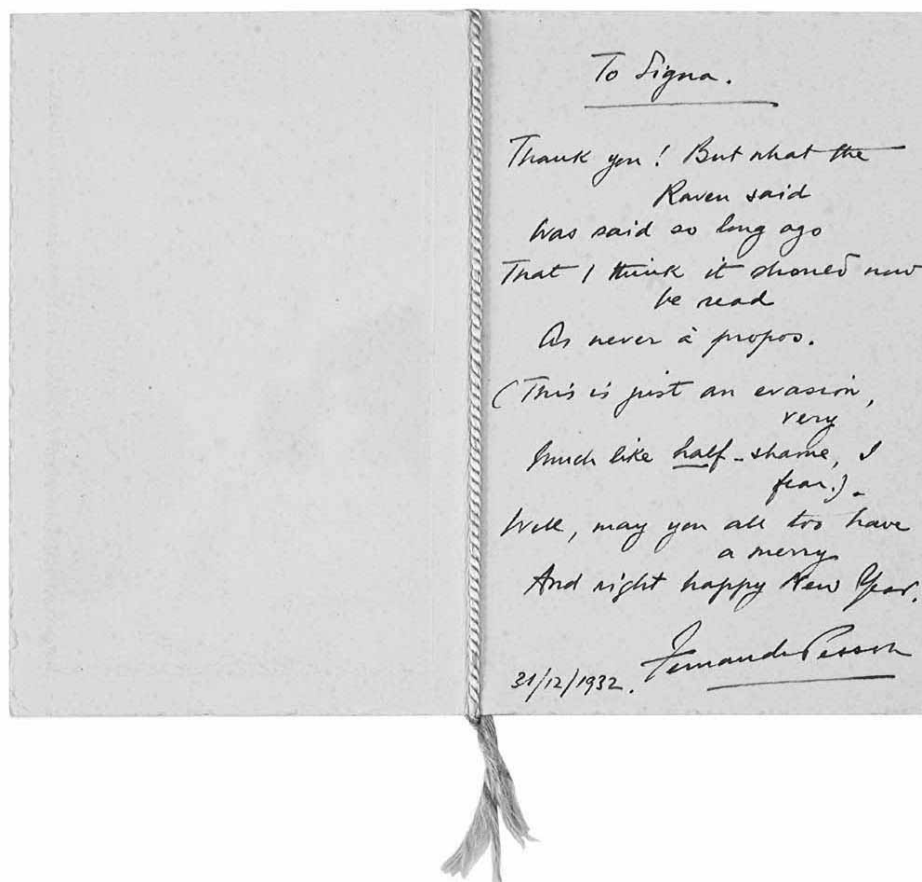 To Signa.
Thank you! But what the
Raven said
Was said so long ago
That I think it should now
be read
As never à propos.
(This is just an evasion,
very
much like half-shame, I
fear.).
Well, may you all too have
a merry
And right happy New Year.
Fernando Pessoa
31/12/1932.